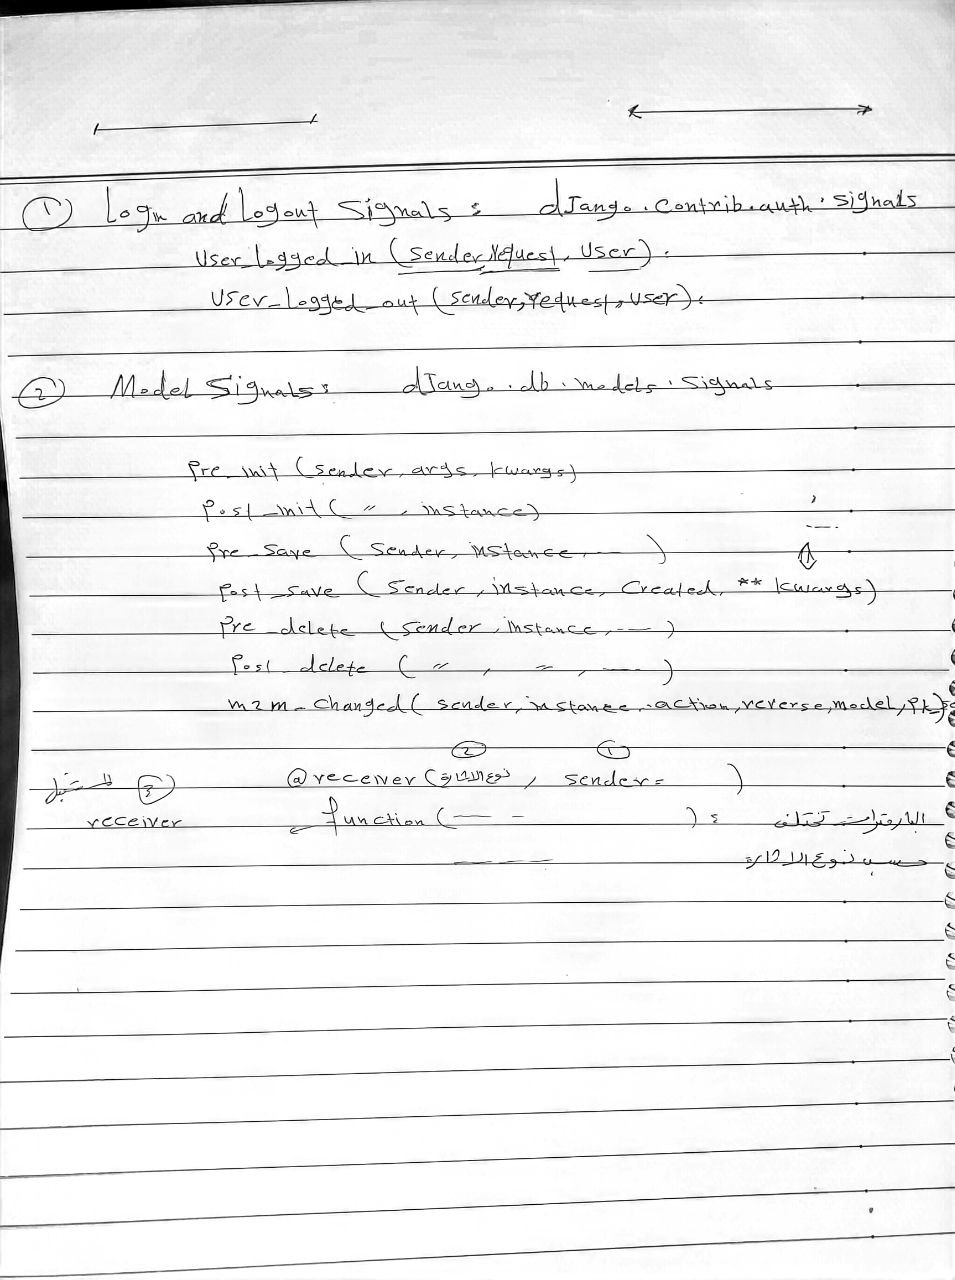 ① Login and Logout Signals : dJango.contrib.auth.signals
User_logged_in (sender, request, user).
User_logged_out (sender, request, user):
② Model Signals: dJango.db.models.signals
Pre_init (sender, args, kwargs)
Post_init ( " , instance)
Pre_save (Sender, instance, --- )
Post_save (Sender, instance, Created, ** kwargs)
Pre_delete (sender, instance, --- )
Post_delete ( " , = , --- )
m2m_changed( sender, instance, action, reverse, model, Pk)
② ①
@receiver (نوع الاشارة , sender= )
③ المستقبل
receiver
function ( --- - ) :
البارمترات تختلف
حسب نوع الاشارة